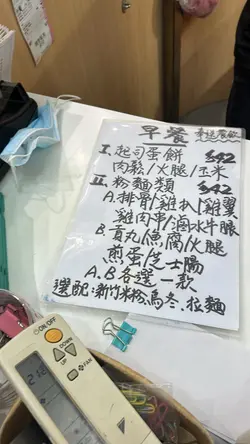 早餐 奉送餐飲
I. 起司蛋餅 $42
肉鬆/火腿/玉米
II. 粉麵類 $42
A. 排骨/雞扒/雞翼
雞肉串/滷水牛腱
B. 貢丸/魚腐/火腿
煎蛋/芝士腸
A.B 各選一款
選配:新竹米粉,烏冬,拉麵
ON/OFF
UP
FAN
DOWN